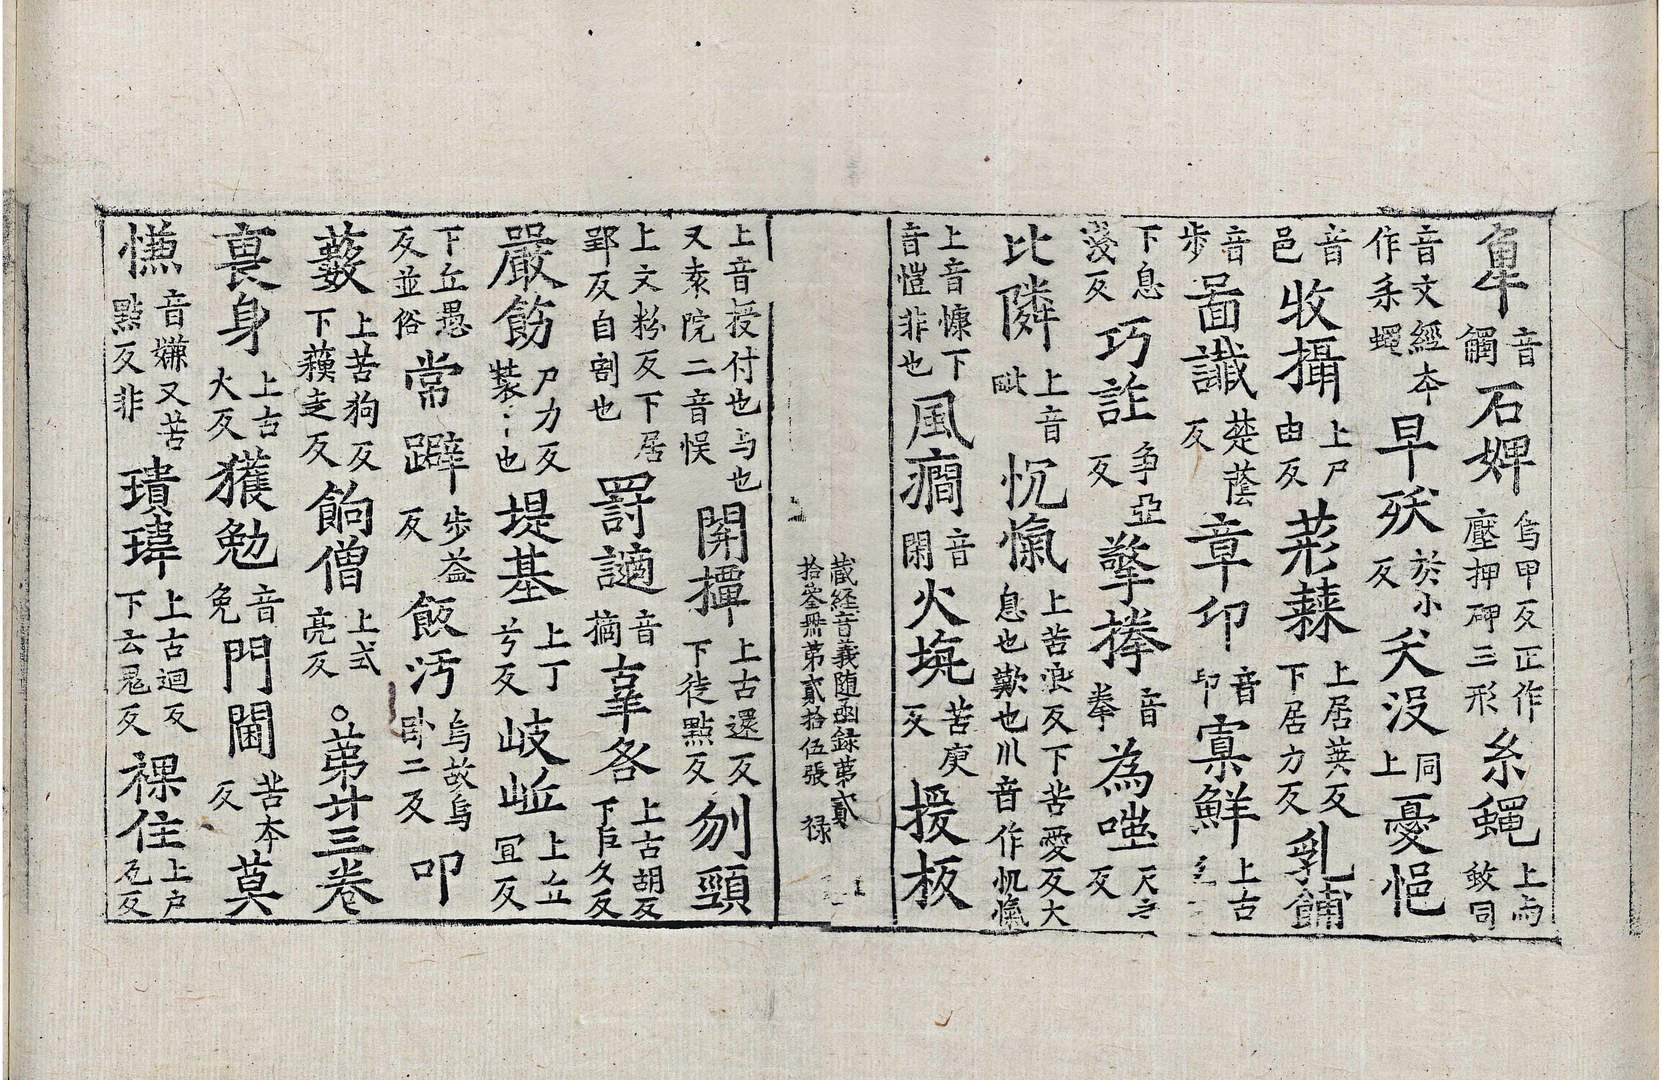 音觸石婢烏甲反正作壓押砷三形糸蠅上両敀同
音文經夲作糸蠅早殀於小反夭没同上憂悒
音邑收攝上尸由反䒳蕀上居英反下居力反乳餔
音步啚讖楚蔭反章印音卬寡鮮上古
下息淺反巧詐爭亞反擎捧音拳為嗤尺之反
比隣上音毗忼愾上苦浪反下苦愛反大息也歎也川音作忼愾
上音慷下音愷非也風癎音閑火坑苦庚反援板
藏経音義随函録第貳拾叁冊苐貳拾伍張 禄
上音授付也与也又表院二音悮開撣上古還反下徒點反刎頸
上文粉反下居郢反自割也罸謫音摘辜咎上古胡反下巨久反
嚴飾尸力反裝〻也堤基上丁兮反岐𡶴上丘冝反
下丘愚反並俗常躃步益反飯汚烏故烏卧二反叩
藪上苦狗反下蘓走反餉僧上式亮反○苐廿三卷
裹身上古火反獲勉音免門閫苦夲反莫
慊音嫌又苦點反非瓌瑋上古迴反下云鬼反裸住上户瓦反